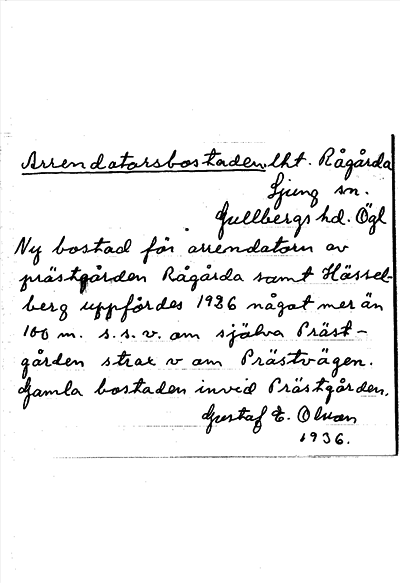 Arrendatorsbostaden, lht. Rågårda
Ljung sn.
Gullbergs hd. Ögl
Ny bostad för arrendatorn av
prästgården Rågårda samt Hässel-
berg uppfördes 1936 något mer än
100 m. s.s.v. om själva Präst-
gården strax v om Prästvägen.
Gamla bostaden invid Prästgården.
Gustaf E. Olson
1936.